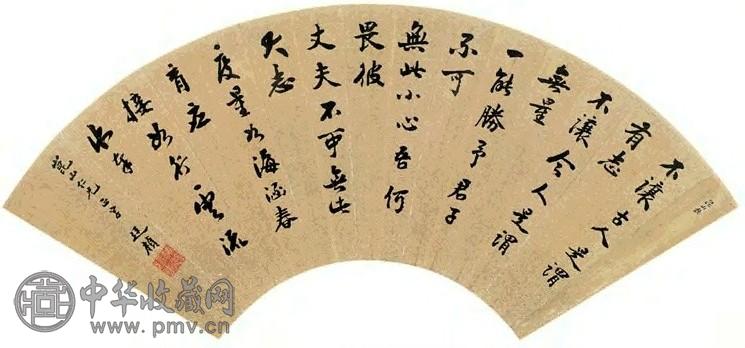 不讓古人是謂
有志
不讓今人是謂
無量
一能勝予君子
不可
無此小心吾何
畏彼
丈夫不可無此
大志
度量如海涵春
育应
接如行雲流
水奉
山仁兄正
中华收藏网
www.pmv.cn